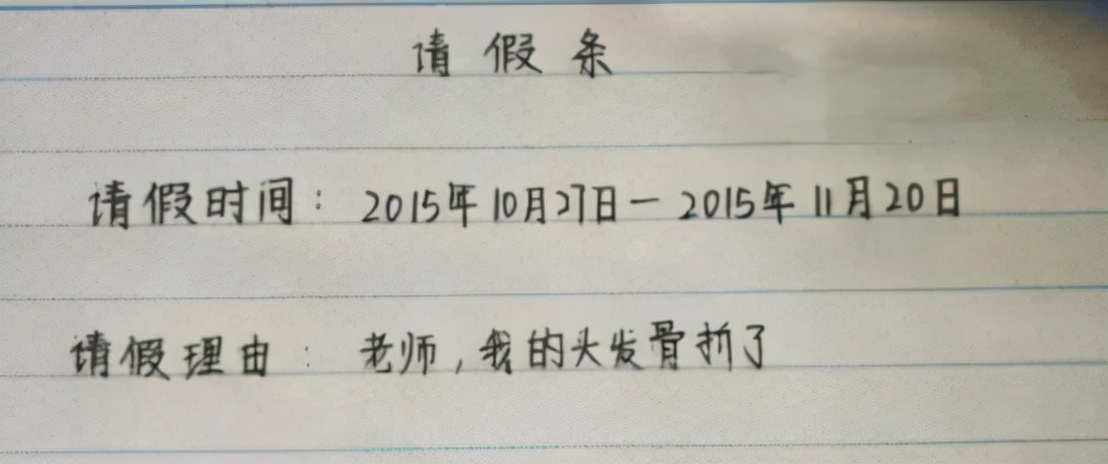 请假条
请假时间：2015年10月27日－2015年11月20日
请假理由：老师，我的头发骨折了